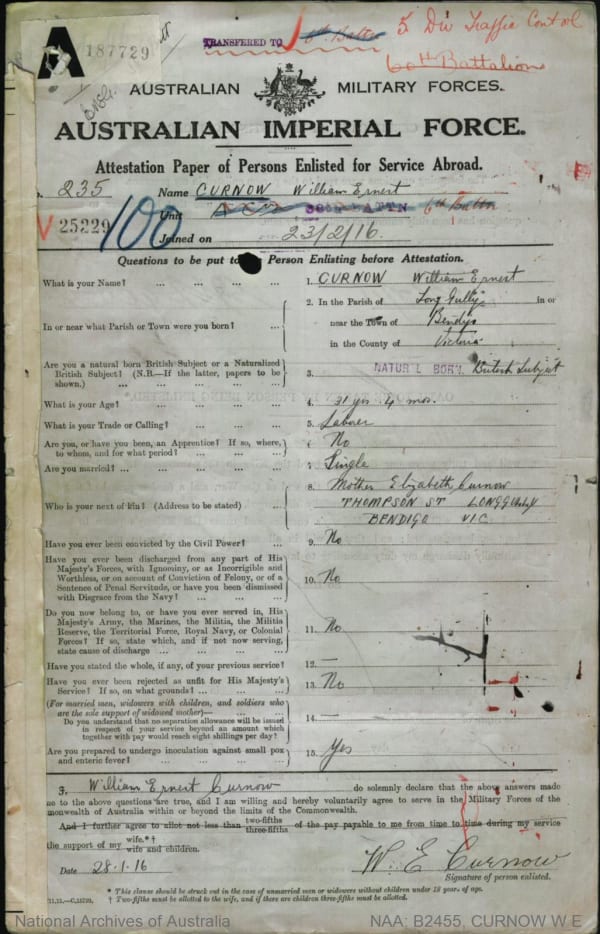 A 187729
TRANSFERRED TO 6th Battn 5 Div Traffic Control
60th Battalion
AUSTRALIAN MILITARY FORCES.
AUSTRALIAN IMPERIAL FORCE.
Attestation Paper of Persons Enlisted for Service Abroad.
235 Name CURNOW William Ernest
V 25229 100 Unit 38th BATTN 6th Battn
Joined on 23/2/16.
Questions to be put to Person Enlisting before Attestation.
What is your Name? ... ... ... ... 1. CURNOW William Ernest
In or near what Parish or Town were you born? ... 2. In the Parish of Long Gully in or
near the Town of Bendigo
in the County of Victoria
Are you a natural born British Subject or a Naturalized
British Subject? (N.B.—If the latter, papers to be
shown.) ... ... ... ... 3. NATURAL BORN British Subject
What is your Age? ... ... ... ... 4. 31 yrs. 4 mos.
What is your Trade or Calling? ... ... ... 5. Laborer
Are you, or have you been, an Apprentice? If so, where,
to whom, and for what period? ... ... ... 6. No
Are you married? ... ... ... ... 7. Single
Who is your next of kin? (Address to be stated) ... 8. Mother Elizabeth Curnow
THOMPSON ST LONG GULLY
BENDIGO VIC
Have you ever been convicted by the Civil Power? ... 9. No
Have you ever been discharged from any part of His
Majesty's Forces, with Ignominy, or as Incorrigible and
Worthless, or on account of Conviction of Felony, or of a
Sentence of Penal Servitude, or have you been dismissed
with Disgrace from the Navy? ... ... ... 10. No
Do you now belong to, or have you ever served in, His
Majesty's Army, the Marines, the Militia, the Militia
Reserve, the Territorial Force, Royal Navy, or Colonial
Forces? If so, state which, and if not now serving,
state cause of discharge ... ... ... 11. No
Have you stated the whole, if any, of your previous service? 12. —
Have you ever been rejected as unfit for His Majesty's
Service? If so, on what grounds? ... ... ... 13. No
(For married men, widowers with children, and soldiers who
are the sole support of widowed mother)—
Do you understand that no separation allowance will be issued
in respect of your service beyond an amount which
together with pay would reach eight shillings per day? 14. —
Are you prepared to undergo inoculation against small pox
and enteric fever? ... ... ... ... 15. Yes
I, William Ernest Curnow do solemnly declare that the above answers made
me to the above questions are true, and I am willing and hereby voluntarily agree to serve in the Military Forces of the
monwealth of Australia within or beyond the limits of the Commonwealth.
And I further agree to allot not less than two-fifths three-fifths of the pay payable to me from time to time during my service
the support of my wife.*† wife and children.
Date 28.1.16 W. E. Curnow
Signature of person enlisted.
* This clause should be struck out in the case of unmarried men or widowers without children under 18 years of age.
† Two-fifths must be allotted to the wife, and if there are children three-fifths must be allotted.
National Archives of Australia NAA: B2455, CURNOW W E